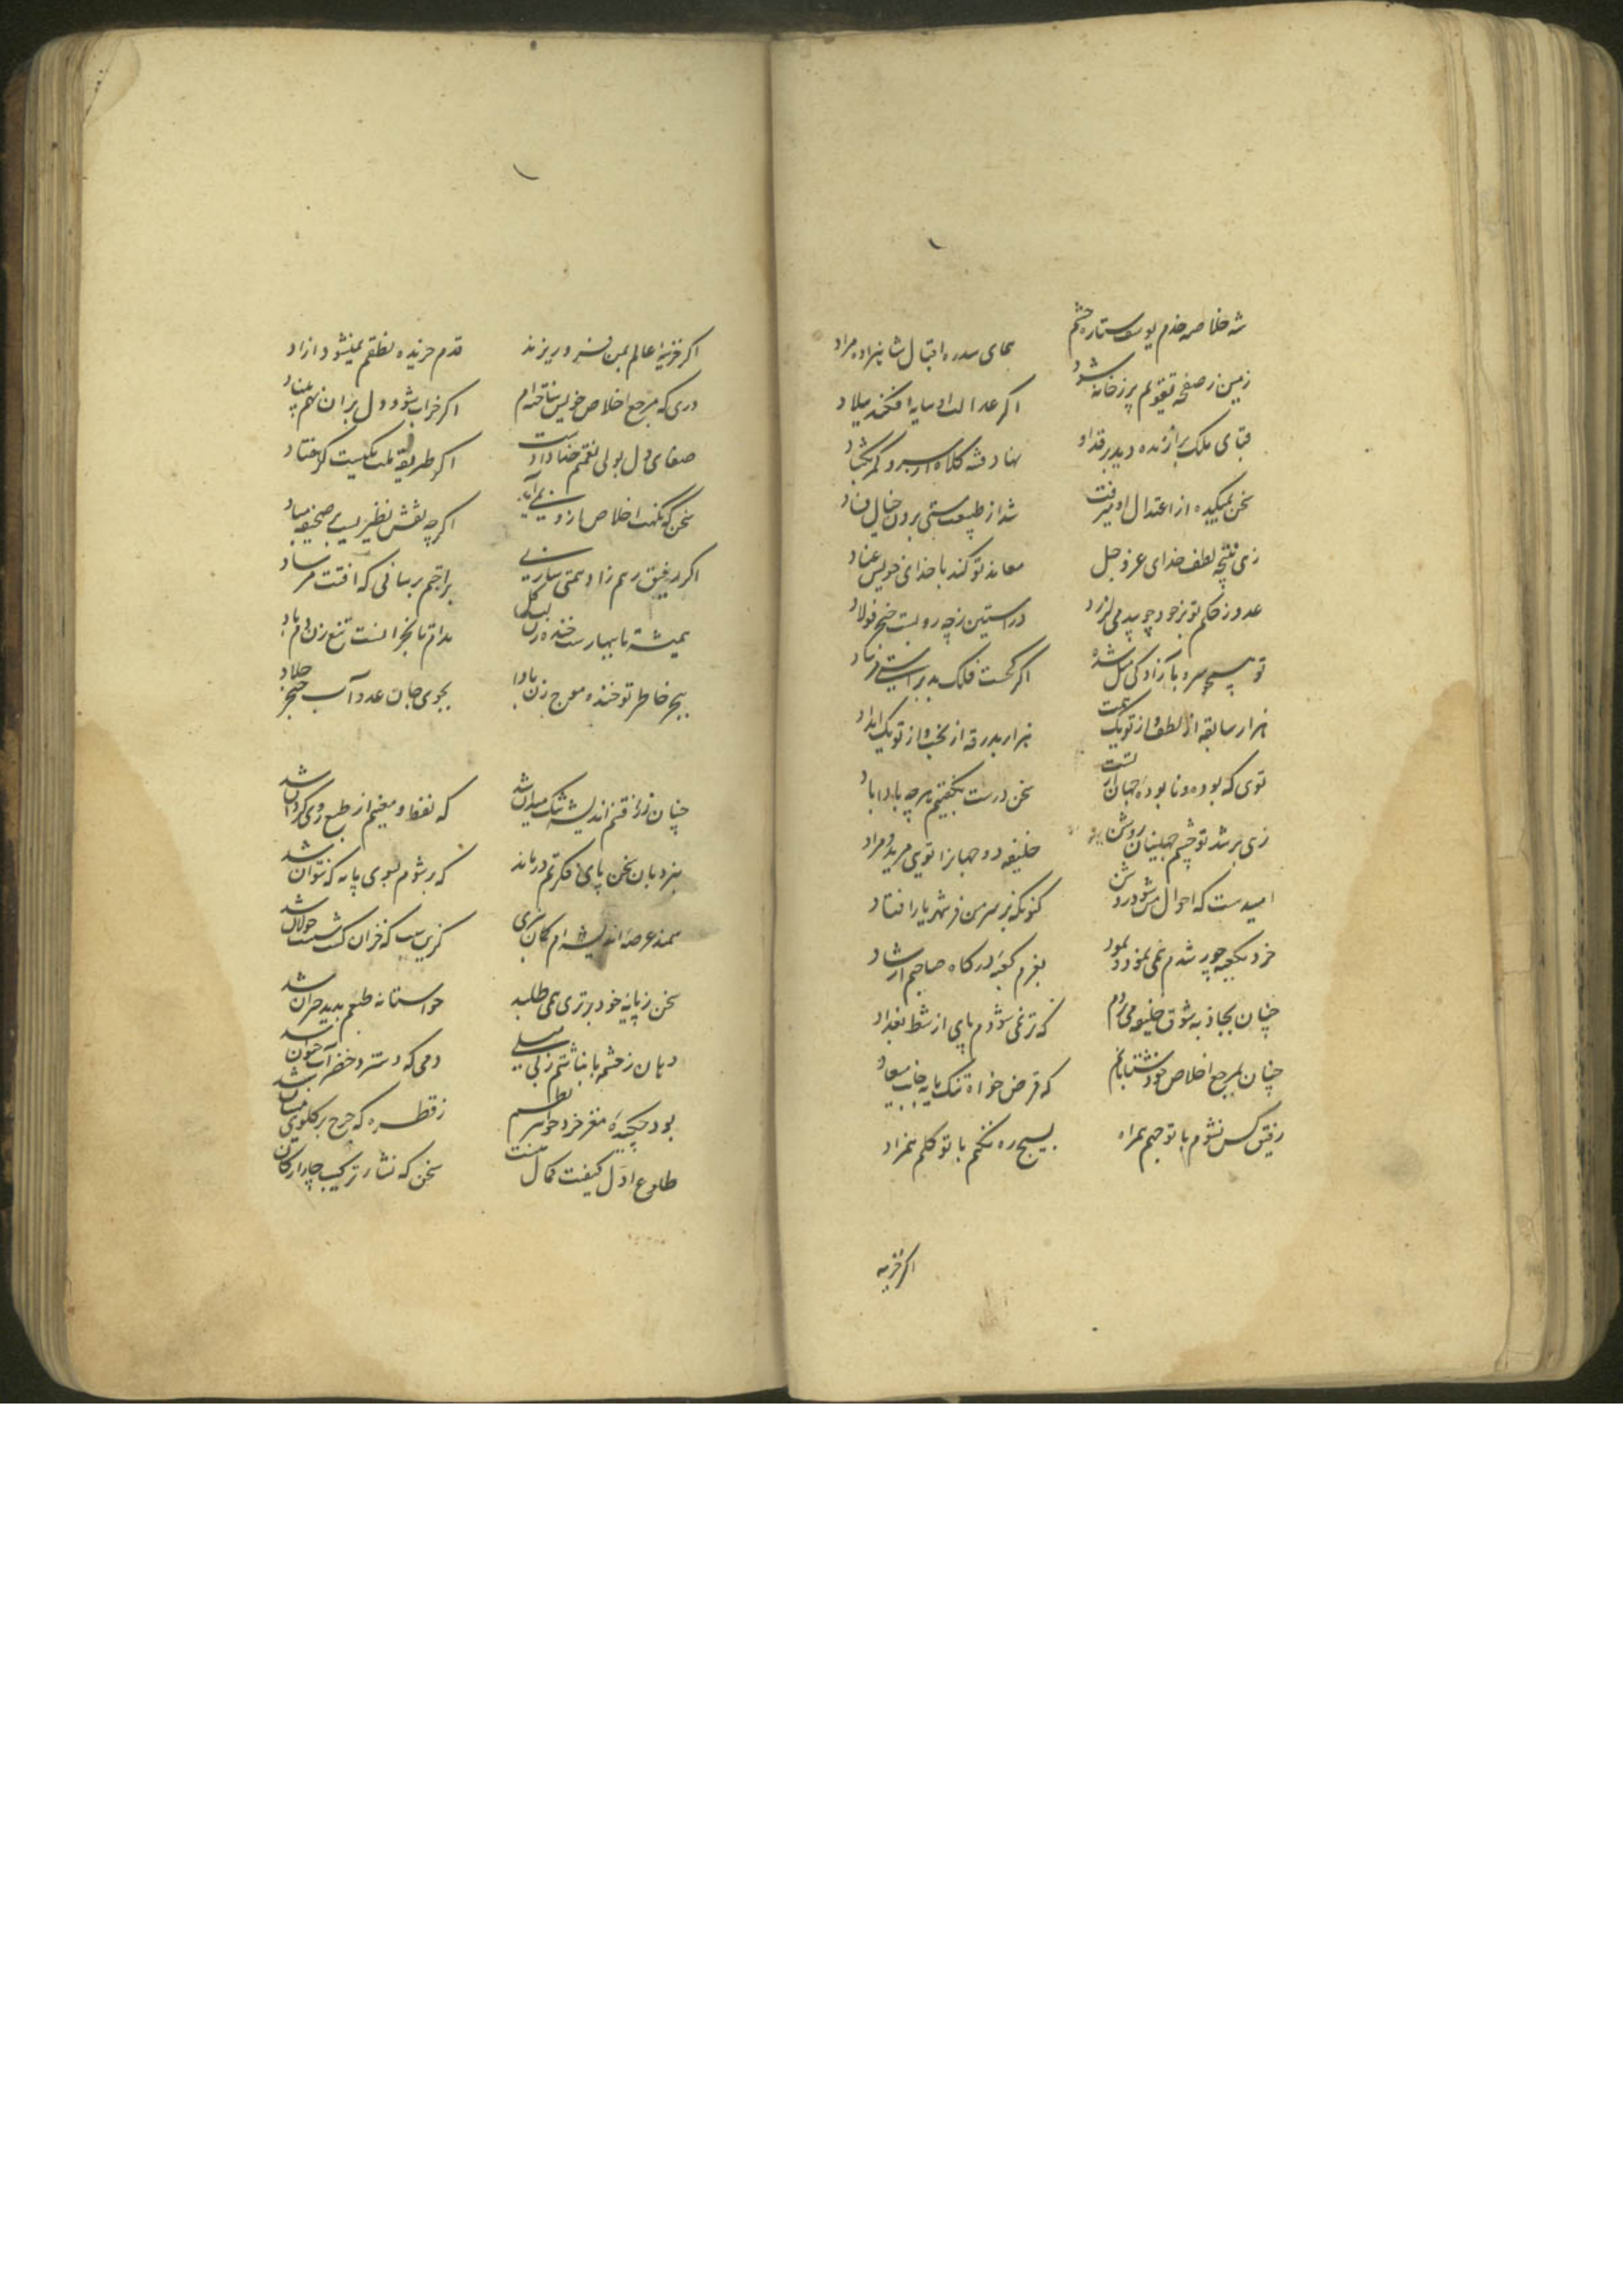 شه خلاصه خدم یوسف ستاره حشم
همای سدره اقبال شاهزاده مراد
زمین ز صفحه تقویم پر ز خانه شود
اگر عدالت او سایه افکند بلاد
قبای ملک برازنده دید بر قد او
نهاد فتنه کلاه از سر و کمر بگشاد
سخن از اعتدال او میرفت
شد از طبیعت هستی برون خیال فساد
زهی نتیجه لطف خدای عز و جل
معاند تو کند با خدای خویش عناد
عدو ز حکم تو بر خود چو بید می لرزد
در استین زچه رو بست خنجر فولاد
تو سرو بآزادکی مثل شده
اگر فلک
هزار سابقه از لطف و از تو یک
هزار بدرقه از بخت و از تو یک امداد
توی که بوده و نابوده جهان از تست
سخن درست بگفتیم هرچه بادا باد
زهی برشد تو چشم جهانیان روشن
خلیفه دو جهانرا توی مرید و مراد
امیدست که احوال من شود روشن
کنونکه بر سر من فر شهریار افتاد
خرد بکعبه چو پی شدم نمی نمود
بعزم کعبه درکاه صاحبم ارشاد
چنان بجاذبه شوق خلیفه می رفتم
که تر نمی شودم پای از شط بغداد
چنان بمرجع اخلاص خود شتابانم
که قرض خواه تنک مایه جانب میعاد
رفیق کس نشوم با توجهم همراه
بسیج ره نکنم با توکلم همزاد
اکر خزینه
اکر خزینه عالم بمن فرو ریزند
قدم خزیده نطقم نمیشود ازاد
دری که مرجع اخلاص خویش ساخته ام
اکر خراب شود دل بران نهم بنیاد
صفای دل بولی نعمتم خدا دادست
اکر طریقه ملت یکیست کر هفتاد
سخن که نکهت اخلاص ازو نمی آید
اکرچه نقش نظیریست بر صحیفه مباد
اکر رفیق رهم زاد همتی سازی
براحتم برسانی که افتت مرساد
همیشه تا بهارست خنده بر لب کل
مدام تا
ببحر خاطر تو خنده موج زن بادا
بجوی جان عدو آب خنجر جلاد
چنان ز رفتنم اندیشه تنک میدان شد
که لفظ و معنیم از طبع روی کردان شد
بنردبان سخن پای فکرتم درماند
که بر شوم بسوی پایه که نتوان شد
سمند عرصه اندیشه ام کران
کزین سبب که خران کشت سست جولان شد
سخن ز پایه خود برتری همی طلبد
حواس تا نه طبعم پدید حیران شد
دهان ز چشمه بابناشتم ز بی
دمی که دسترد خضر آب حیوان شد
بود چکیده مغز خرد جواهر نظم
ز قطره که چرخ بر کلوی
طلوع اول کیفیت کمال منست
سخن که نشاء ترکیب چار ارکان شد